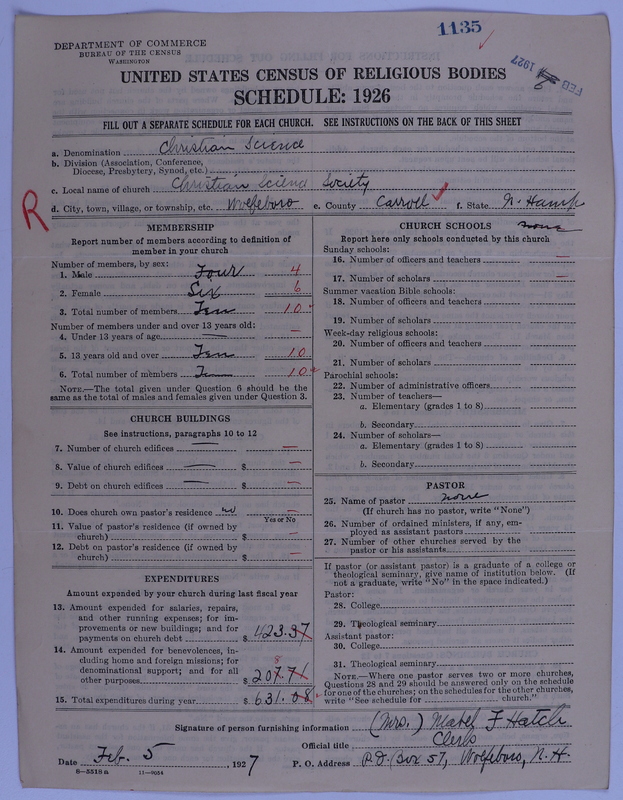 1135
DEPARTMENT OF COMMERCE
BUREAU OF THE CENSUS
WASHINGTON
FEB 1927
UNITED STATES CENSUS OF RELIGIOUS BODIES
SCHEDULE: 1926
FILL OUT A SEPARATE SCHEDULE FOR EACH CHURCH. SEE INSTRUCTIONS ON THE BACK OF THIS SHEET
a. Denomination Christian Science
b. Division (Association, Conference,
Diocese, Presbytery, Synod, etc.)
c. Local name of church Christian Science Society
d. City, town, village, or township, etc. Wolfeboro e. County Carroll f. State N. Hamp
R
MEMBERSHIP
Report number of members according to definition of
member in your church
Number of members, by sex:
1. Male Four 4
2. Female Six 6
3. Total number of members Ten 10
Number of members under and over 13 years old:
4. Under 13 years of age — —
5. 13 years old and over Ten 10
6. Total number of members Ten 10
NOTE.—The total given under Question 6 should be the
same as the total of males and females given under Question 3.
CHURCH BUILDINGS
See instructions, paragraphs 10 to 12
7. Number of church edifices — —
8. Value of church edifices — $ —
9. Debt on church edifices — $ —
10. Does church own pastor's residence no —
Yes or No
11. Value of pastor's residence (if owned by
church) $ —
12. Debt on pastor's residence (if owned by
church) $ —
EXPENDITURES
Amount expended by your church during last fiscal year
13. Amount expended for salaries, repairs,
and other running expenses; for im-
provements or new buildings; and for
payments on church debt $ 423.37
14. Amount expended for benevolences, in-
cluding home and foreign missions; for
denominational support; and for all
other purposes $ 207.71
8
15. Total expenditures during year $ 631.08
CHURCH SCHOOLS none
Report here only schools conducted by this church
Sunday schools:
16. Number of officers and teachers —
17. Number of scholars —
Summer vacation Bible schools:
18. Number of officers and teachers
19. Number of scholars
Week-day religious schools:
20. Number of officers and teachers
21. Number of scholars
Parochial schools:
22. Number of administrative officers
23. Number of teachers—
a. Elementary (grades 1 to 8)
b. Secondary
24. Number of scholars—
a. Elementary (grades 1 to 8)
b. Secondary
PASTOR
25. Name of pastor none
(If church has no pastor, write "None")
26. Number of ordained ministers, if any, em-
ployed as assistant pastors
27. Number of other churches served by the
pastor or his assistants
If pastor (or assistant pastor) is a graduate of a college or
theological seminary, give name of institution below. (If
not a graduate, write "No" in the space indicated.)
Pastor:
28. College
29. Theological seminary
Assistant pastor:
30. College
31. Theological seminary
NOTE.—Where one pastor serves two or more churches,
Questions 28 and 29 should be answered only on the schedule
for one of the churches; on the schedules for the other churches,
write "See schedule for church."
Signature of person furnishing information (Mrs.) Mabel F Hatch
Official title Clerk
Date Feb. 5, 1927 P. O. Address P.O. Box 57, Wolfeboro, N. H.
8—5518a 11—9054